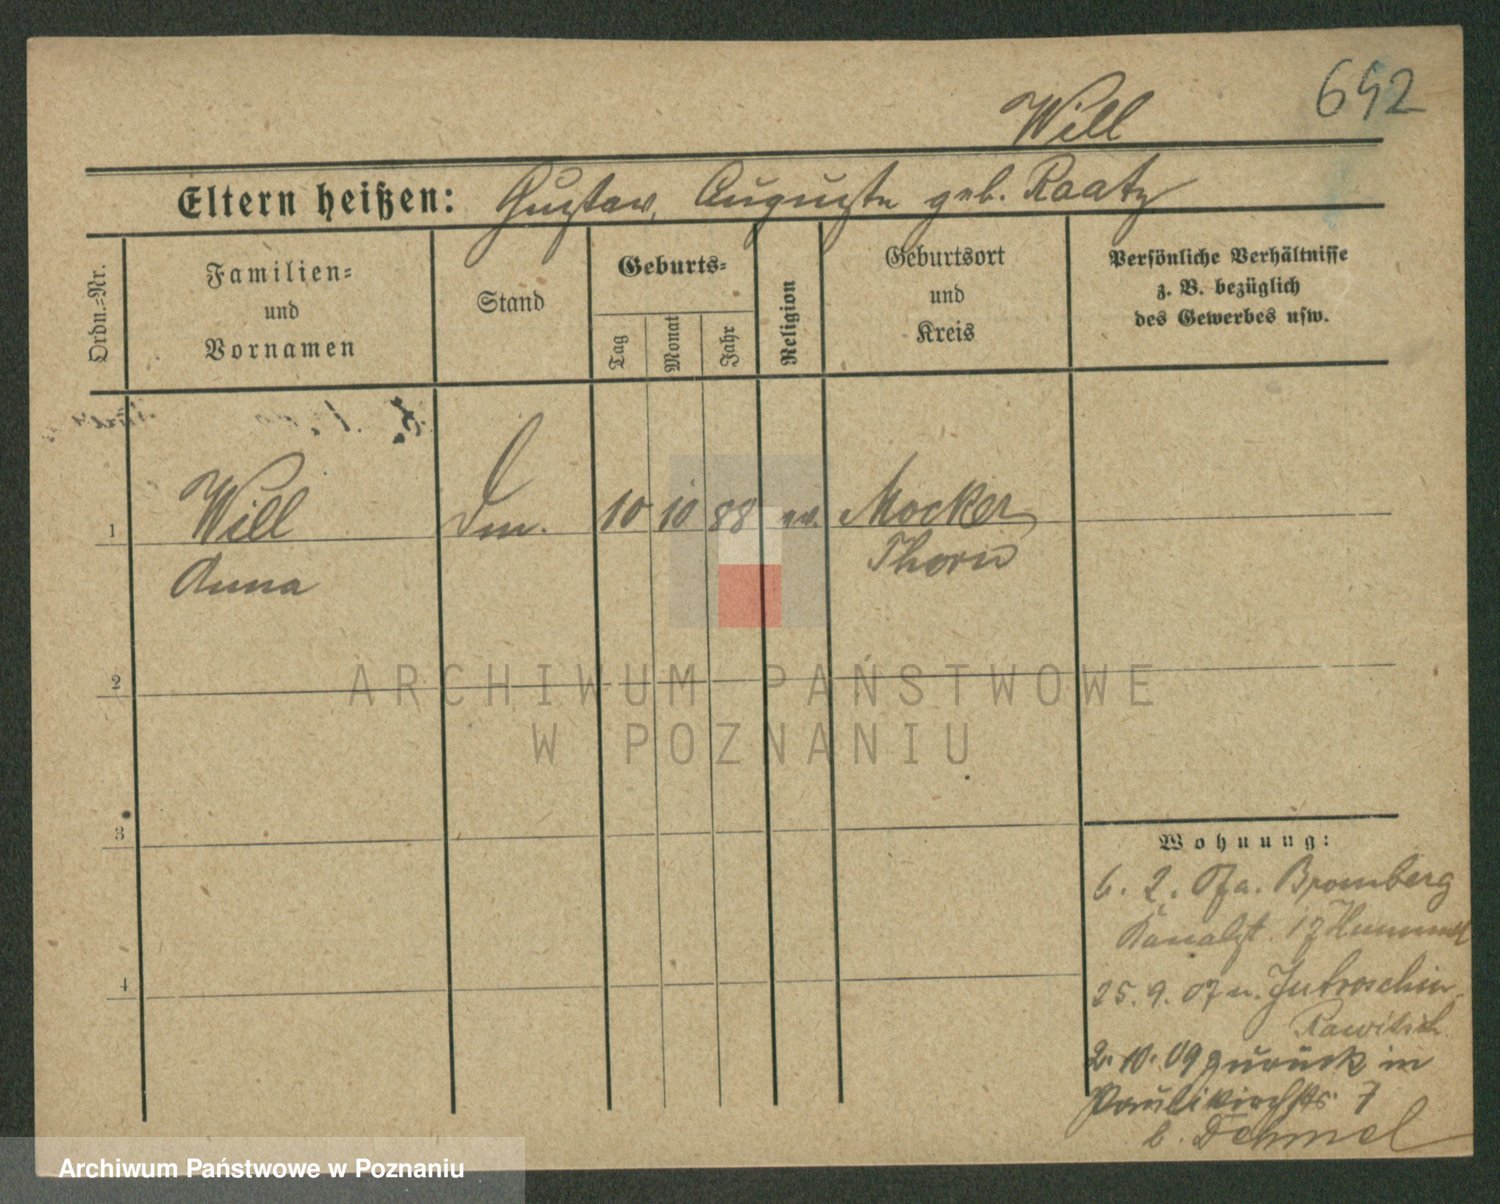 642
Will
Eltern heißen: Gustav, Auguste geb. Raatz
Ordn.-Nr.
Familien-
und
Vornamen
Stand
Geburts-
Tag
Monat
Jahr
Religion
Geburtsort
und
Kreis
Persönliche Verhältnisse
z. B. bezüglich
des Gewerbes usw.
1
Will 10 10 88 ev. Mocker
Anna Thorn
2
ARCHIWUM PAŃSTWOWE
W POZNANIU
3
4
Wohnung:
6. 2. 07 a. Bromberg
Kanalst. 17 Hummel
25. 9. 07 n. Jutroschin
Rawitsch
2. 10. 09 zurück in
Paulikirchstr. 7
b. Dehmel
Archiwum Państwowe w Poznaniu